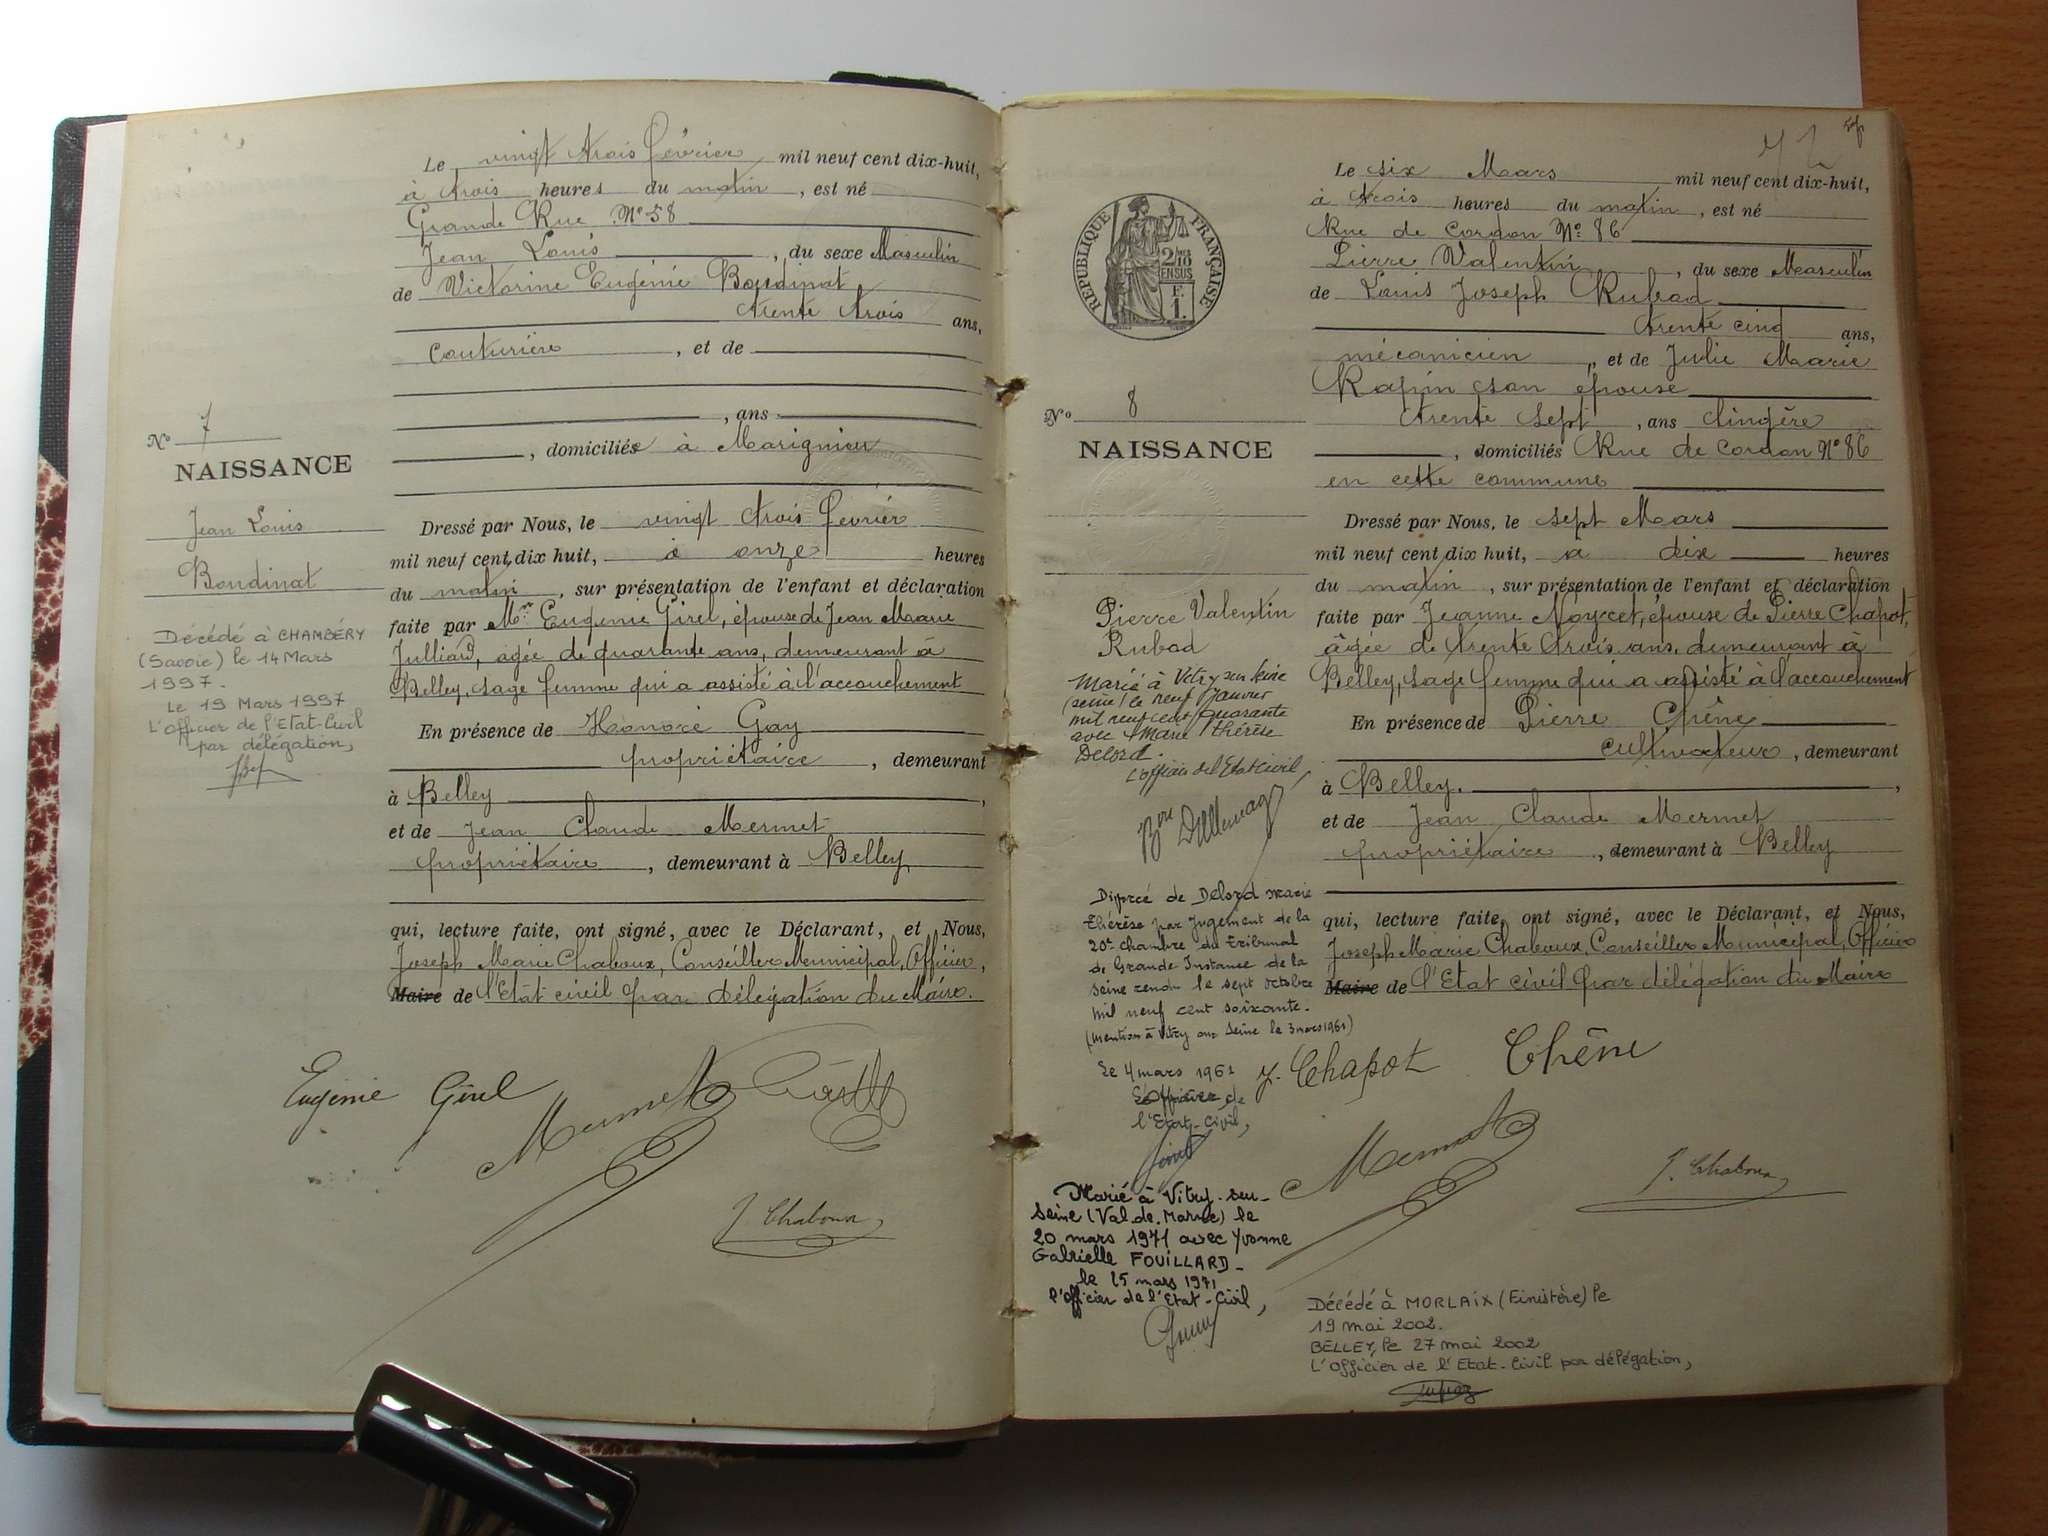 Le vingt trois février mil neuf cent dix-huit,
à trois heures du matin, est né
Grande Rue Nº 58
Jean Louis, du sexe Masculin
de Victorine Eugénie Boudinat
trente trois ans,
couturière, et de
, ans
, domiciliée à Marignieu
Nº 7
NAISSANCE
Jean Louis
Boudinat
Décédé à CHAMBÉRY
(Savoie) le 14 Mars
1997.
Le 19 Mars 1997
L'Officier de l'Etat-Civil
par délégation,
Dressé par Nous, le vingt trois février
mil neuf cent dix huit, à onze heures
du matin, sur présentation de l'enfant et déclaration
faite par Me Eugénie Girel, épouse de Jean Marie
Julliard, agée de quarante ans, demeurant à
Belley, sage femme qui a assisté à l'accouchement
En présence de Honoré Gay
propriétaire, demeurant
à Belley,
et de Jean Claude Mermet
propriétaire, demeurant à Belley,
qui, lecture faite, ont signé, avec le Déclarant, et Nous,
Joseph Marie Chaboux, Conseiller Municipal, Officier,
Maire de l'Etat civil par délégation du Maire.
Eugénie Girel
Mermet
J. Chaboux
Le six Mars mil neuf cent dix-huit,
à trois heures du matin, est né
Rue de Cordon Nº 86
Pierre Valentin, du sexe Masculin
de Louis Joseph Rubod
trente cinq ans,
mécanicien, et de Julie Marie
Rapin son épouse
trente sept, ans lingère
, domiciliés Rue de Cordon Nº 86
en cette commune
REPUBLIQUE FRANÇAISE
2/10 EN SUS
F.
1.
Nº 8
NAISSANCE
Pierre Valentin
Rubod
Marié à Vitry sur Seine
(Seine) le neuf Janvier
mil neuf cent quarante
avec Marie Thérèse
Delord.
L'officier de l'Etat Civil,
Divorcé de Delord Marie
Thérèse par Jugement de la
20e chambre du Tribunal
de Grande Instance de la
Seine rendu le sept octobre
mil neuf cent soixante.
(mention à Vitry sur Seine le 3 mars 1961)
Le 4 mars 1961
L'Officier de
l'Etat-Civil,
Marié à Vitry-sur-
Seine (Val de Marne) le
20 mars 1971 avec Yvonne
Gabrielle FOUILLARD-
le 25 mars 1971
l'officier de l'Etat-Civil,
Dressé par Nous, le sept Mars
mil neuf cent dix huit, à dix heures
du matin, sur présentation de l'enfant et déclaration
faite par Jeanne épouse de Pierre Chapot,
âgée de trente trois ans, demeurant à
Belley, sage femme qui a assisté à l'accouchement
En présence de Pierre Chêne
cultivateur, demeurant
à Belley.,
et de Jean Claude Mermet
propriétaire, demeurant à Belley
qui, lecture faite, ont signé, avec le Déclarant, et Nous,
Joseph Marie Chaboux, Conseiller Municipal, Officier
Maire de l'Etat civil par délégation du Maire
J. Chapot Chêne
Mermet
J. Chaboux
Décédé à MORLAIX (Finistère) le
19 mai 2002.
BELLEY, le 27 mai 2002
L'officier de l'Etat-Civil par délégation,